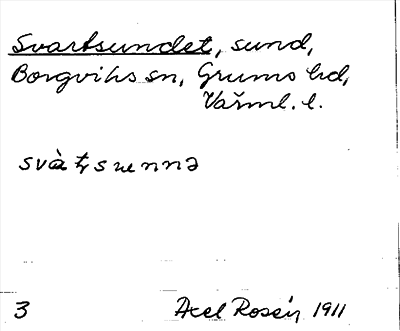 Svartsundet, sund,
Borgviks sn, Grums hd,
Värml. l.
svàtsunnə
3 Axel Rosén 1911